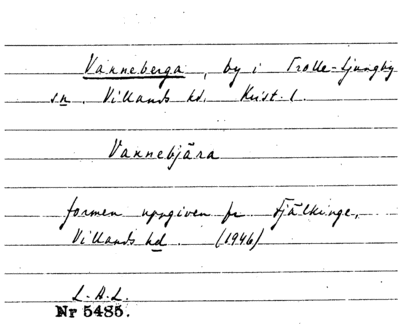 Vanneberga, by i Trolle-Ljungby
sn. Villands hd. Krist. l.
Vannebjära
formen uppgiven fr Fjälkinge,
Villands hd. (1946)
L.A.L.
Nr 5485.